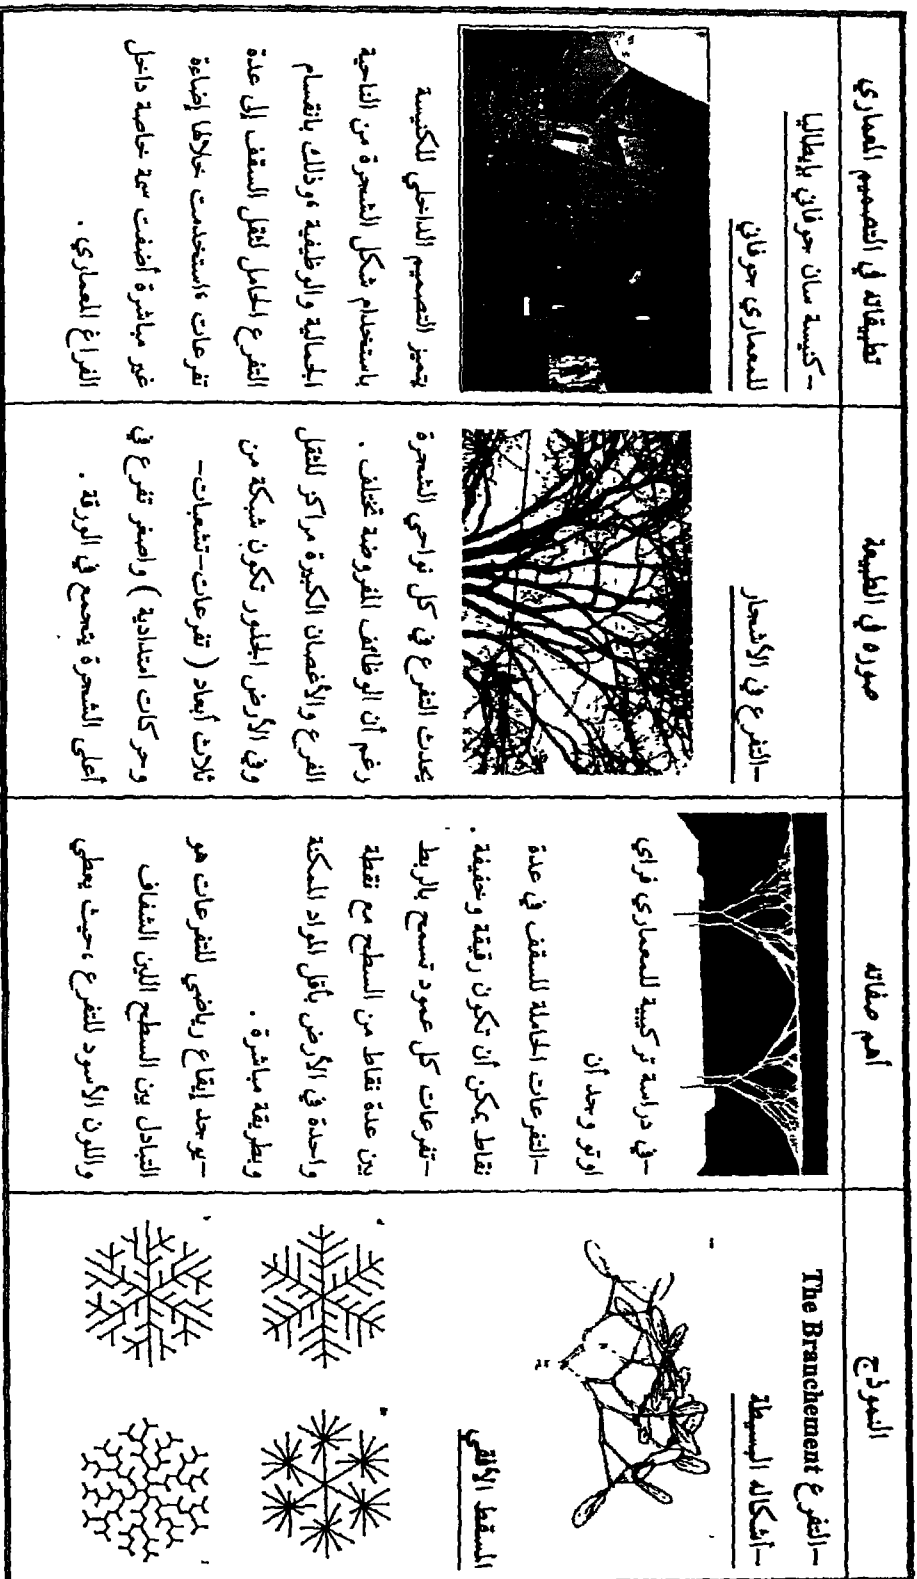 النموذج
أهم صفاته
صوره في الطبيعة
تطبيقاته في التصميم المعماري
-التفرع The Branchement
-أشكاله البسيطة
المسقط الأفقي
-في دراسة تركيبية للمعماري فراي
اوتو وجد أن
-التفرعات الحاملة للسقف في عدة
نقاط يمكن أن تكون رقيقة وخفيفة .
-تفرعات كل عمود تسمح بالربط
بين عدة نقاط من السطح مع نقطة
واحدة في الأرض بأقل المواد الممكنة
وبطريقة مباشرة .
-يوجد إيقاع رياضي للتفرعات هو
التبادل بين السطح اللين الشفاف
واللون الأسود للتفرع ،حيث يعطي
-التفرع في الأشجار
يحدث التفرع في كل نواحي الشجرة
رغم أن الوظائف المفروضة تختلف .
الفرع والأغصان الكبيرة مراكز للثقل
وفي الأرض الجذور تكون شبكة من
ثلاث أبعاد ( تفرعات-تشعبات-
وحركات امتدادية ) واصغر تفرع في
أعلى الشجرة يتجمع في الورقة .
-كنيسة سان جوفاني بإيطاليا
للمعماري جوفاني
يتميز التصميم الداخلي للكنيسة
باستخدام شكل الشجرة من الناحية
الجمالية والوظيفية ،وذلك بانقسام
التفرع الحامل لثقل السقف إلى عدة
تفرعات ،استخدمت خلالها إضاءة
غير مباشرة أضفت سمة خاصة داخل
الفراغ المعماري .